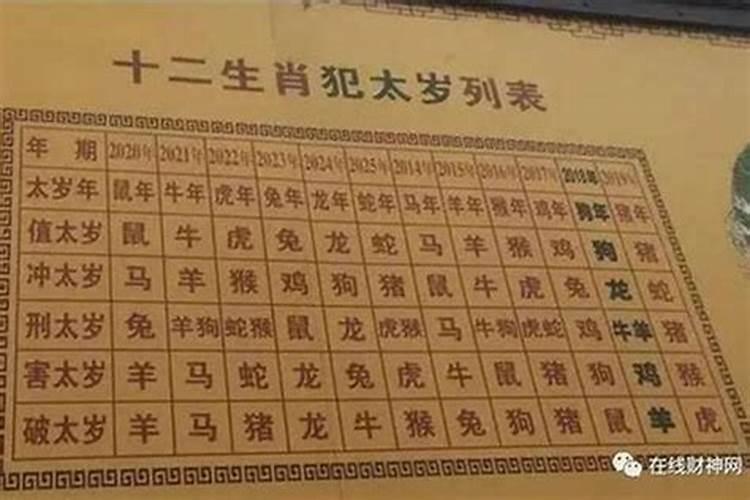 十二生肖犯太岁列表
年 期 2020年 2021年 2022年 2023年 2024年 2025年 2014年 2015年 2016年 2017年 2018年 2019年
太岁年 鼠年 牛年 虎年 兔年 龙年 蛇年 马年 羊年 猴年 鸡年 狗年 猪年
值太岁 鼠 牛 虎 兔 龙 蛇 马 羊 猴 鸡 狗 猪
冲太岁 马 羊 猴 鸡 狗 猪 鼠 牛 虎 兔 龙 蛇
刑太岁 兔 羊狗 蛇猴 鼠 龙 虎猴 马 牛狗 虎蛇 鸡 牛羊 猪
害太岁 羊 马 蛇 龙 兔 虎 牛 鼠 猪 狗 鸡 猴
破太岁 羊 马 猪 龙 牛 猴 兔 狗 猪 鼠 羊 虎
在线财神网